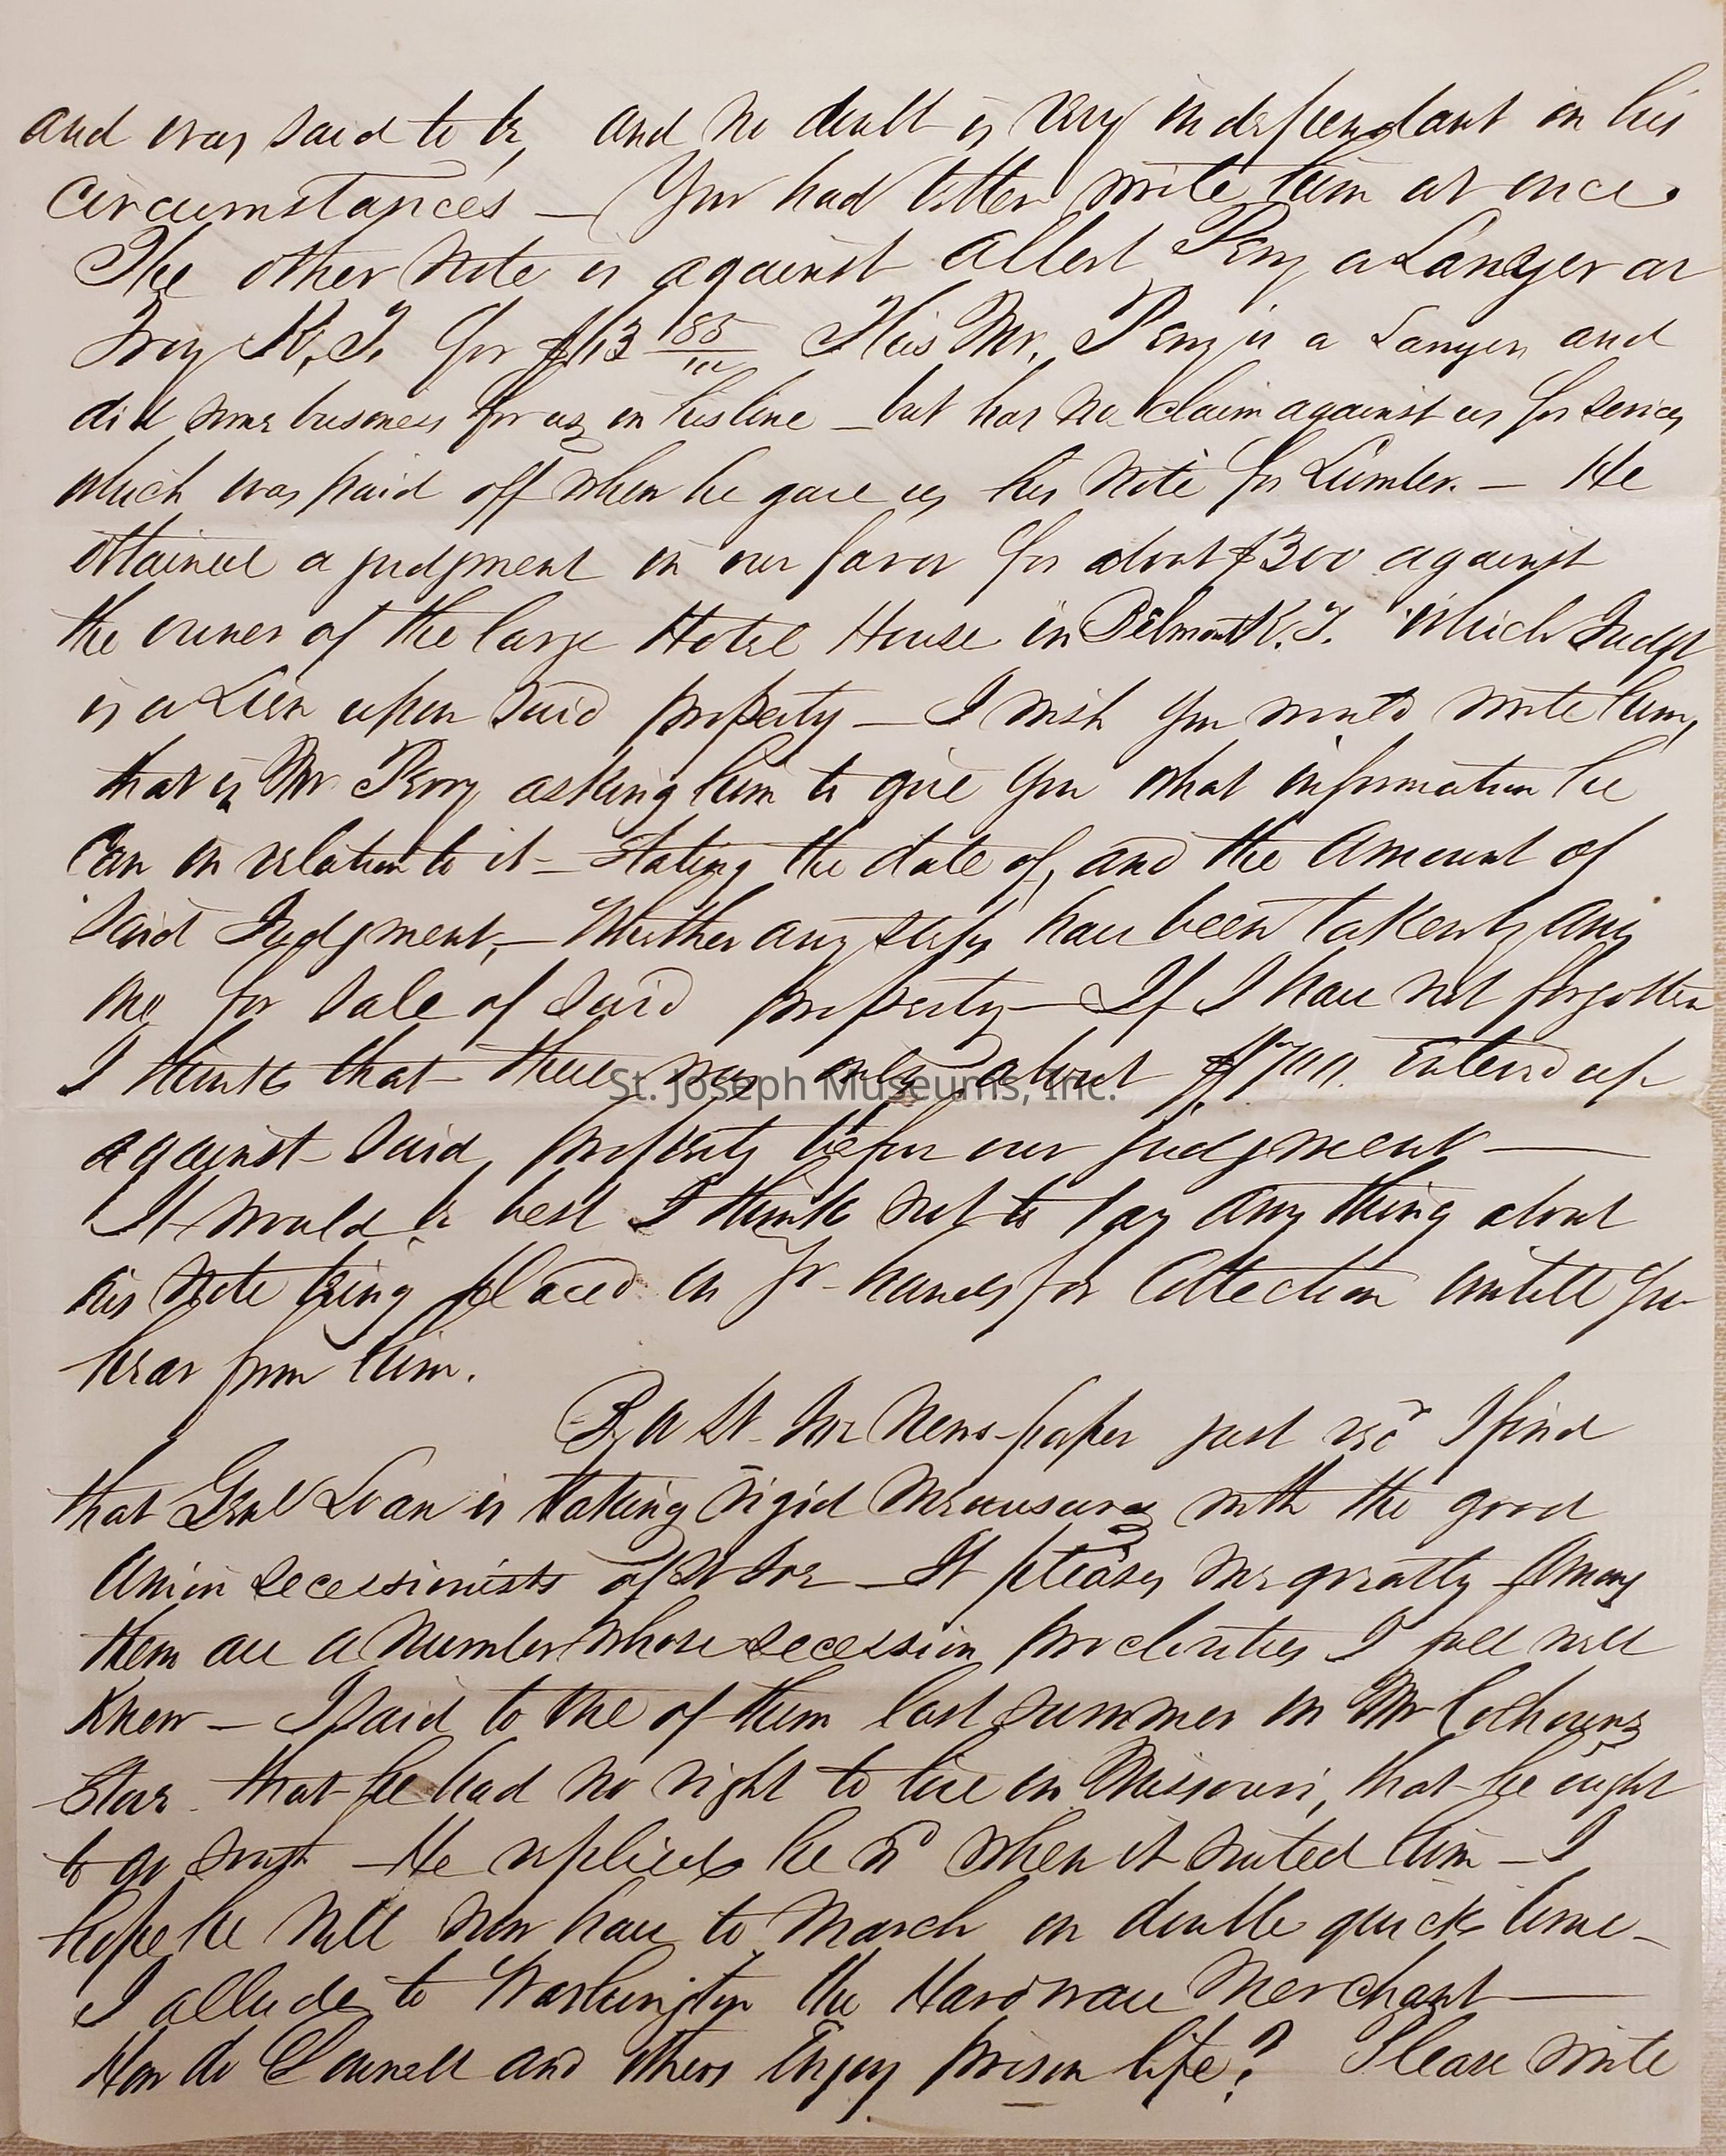 and was said to be, and no doubt is very independant in his
circumstances — You had better write him at once.
The other Note is against Albert Perry a Lawyer at
Troy K. T. for $113 85/100 This Mr. Perry is a Lawyer and
did some business for us in his line — but has no claim against us for services
which was paid off when he gave us his Note for Lumber. — He
obtained a judgment in our favor for about $300 against
the owner of the large Hotel House in Belmont K. T. Which Judgt
is a Lien upon said property — I wish you would write him,
that is Mr. Perry asking him to give you what information he
can in relation to it — Stating the date of, and the Amount of
said Judgment, — Whether any steps have been taken by any
one for sale of said property — If I have not forgotten
I think that there was only about $700. Entered up
St. Joseph Museums, Inc.
against said property before our judgment —
It would be best I think not to say any thing about
his Note being placed in yr. hands for Collection untill you
hear from him.
By a St. Joe News-paper just recd I find
that Genl Loan is taking rigid measures with the good
Union secessionists of St Joe — It pleases me greatly Among
them are a Number whose secession proclivities I full well
knew — I said to one of them last summer in Mr
Store that he had no right to live in Missouri, that he ought
to go south — He replied he wd when it suited him — I
hope he will now have to march in double quick time —
I allude to Washington the Hardware Merchant —
How do and others Enjoy prison life? Please write